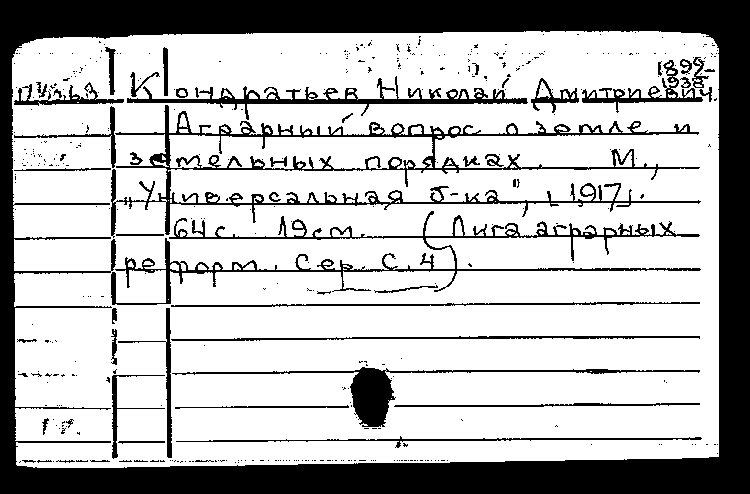 1892-
1938
Кондратьев, Николай Дмитриевич.
Аграрный вопрос о земле и
земельных порядках. М.,
„Универсальная б-ка", [1917].
64 с. 19 см. (Лига аграрных
реформ. Сер. С. 4).